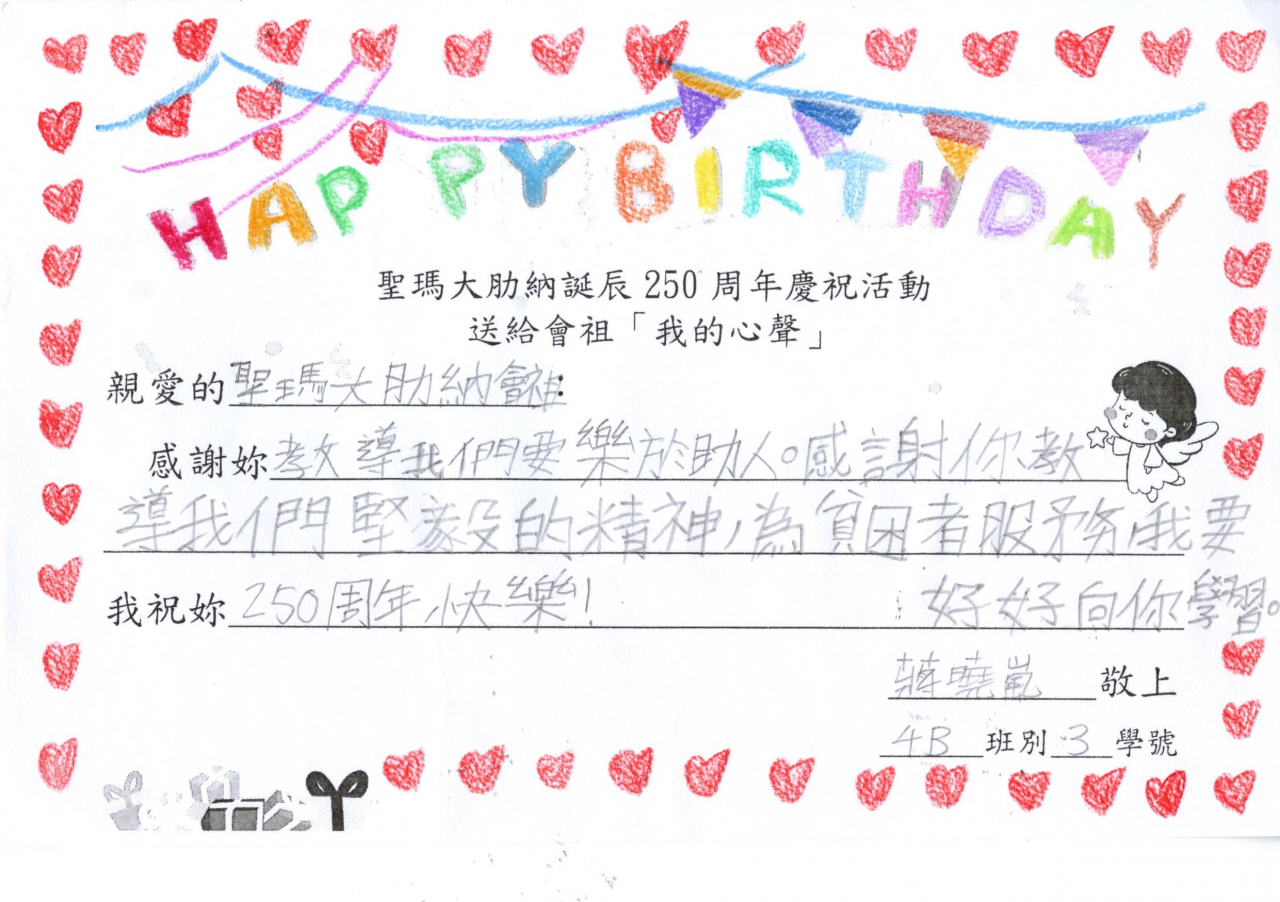 HAPPY BIRTHDAY
聖瑪大肋納誕辰 250 周年慶祝活動
送給會祖「我的心聲」
親愛的聖瑪大肋納會祖:
感謝妳教導我們要樂於助人。感謝你教
導我們堅毅的精神,為貧困者服務,我要
我祝妳250周年快樂! 好好向你學習。
蔣曉嵐 敬上
4B 班別 3 學號